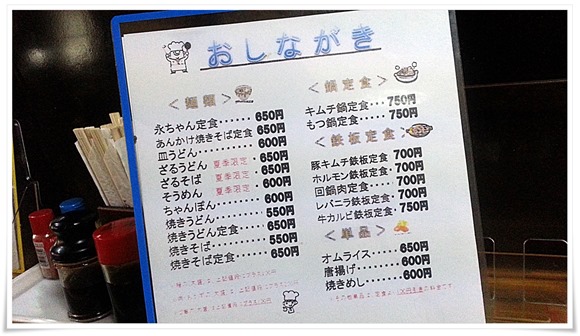 おしながき
＜麺類＞
永ちゃん定食・・・・・・650円
あんかけ焼きそば定食・650円
皿うどん・・・・・・・・・600円
ざるうどん 夏季限定・650円
ざるそば 夏季限定・650円
そうめん 夏季限定・600円
ちゃんぽん・・・・・・・・600円
焼きうどん・・・・・・・・550円
焼きうどん定食・・・・・650円
焼きそば・・・・・・・・・550円
焼きそば定食・・・・・・650円
＜鍋定食＞
キムチ鍋定食・・・750円
もつ鍋定食・・・・750円
＜鉄板定食＞
豚キムチ鉄板定食・700円
ホルモン鉄板定食・700円
回鍋肉定食・・・・700円
レバニラ鉄板定食・700円
牛カルビ鉄板定食・750円
＜単品＞
オムライス・・・・・650円
唐揚げ・・・・・・・600円
焼きめし・・・・・・600円